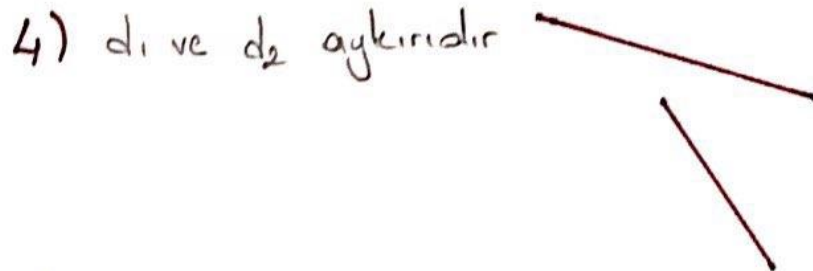 4) d₁ ve d₂ aykırıdır